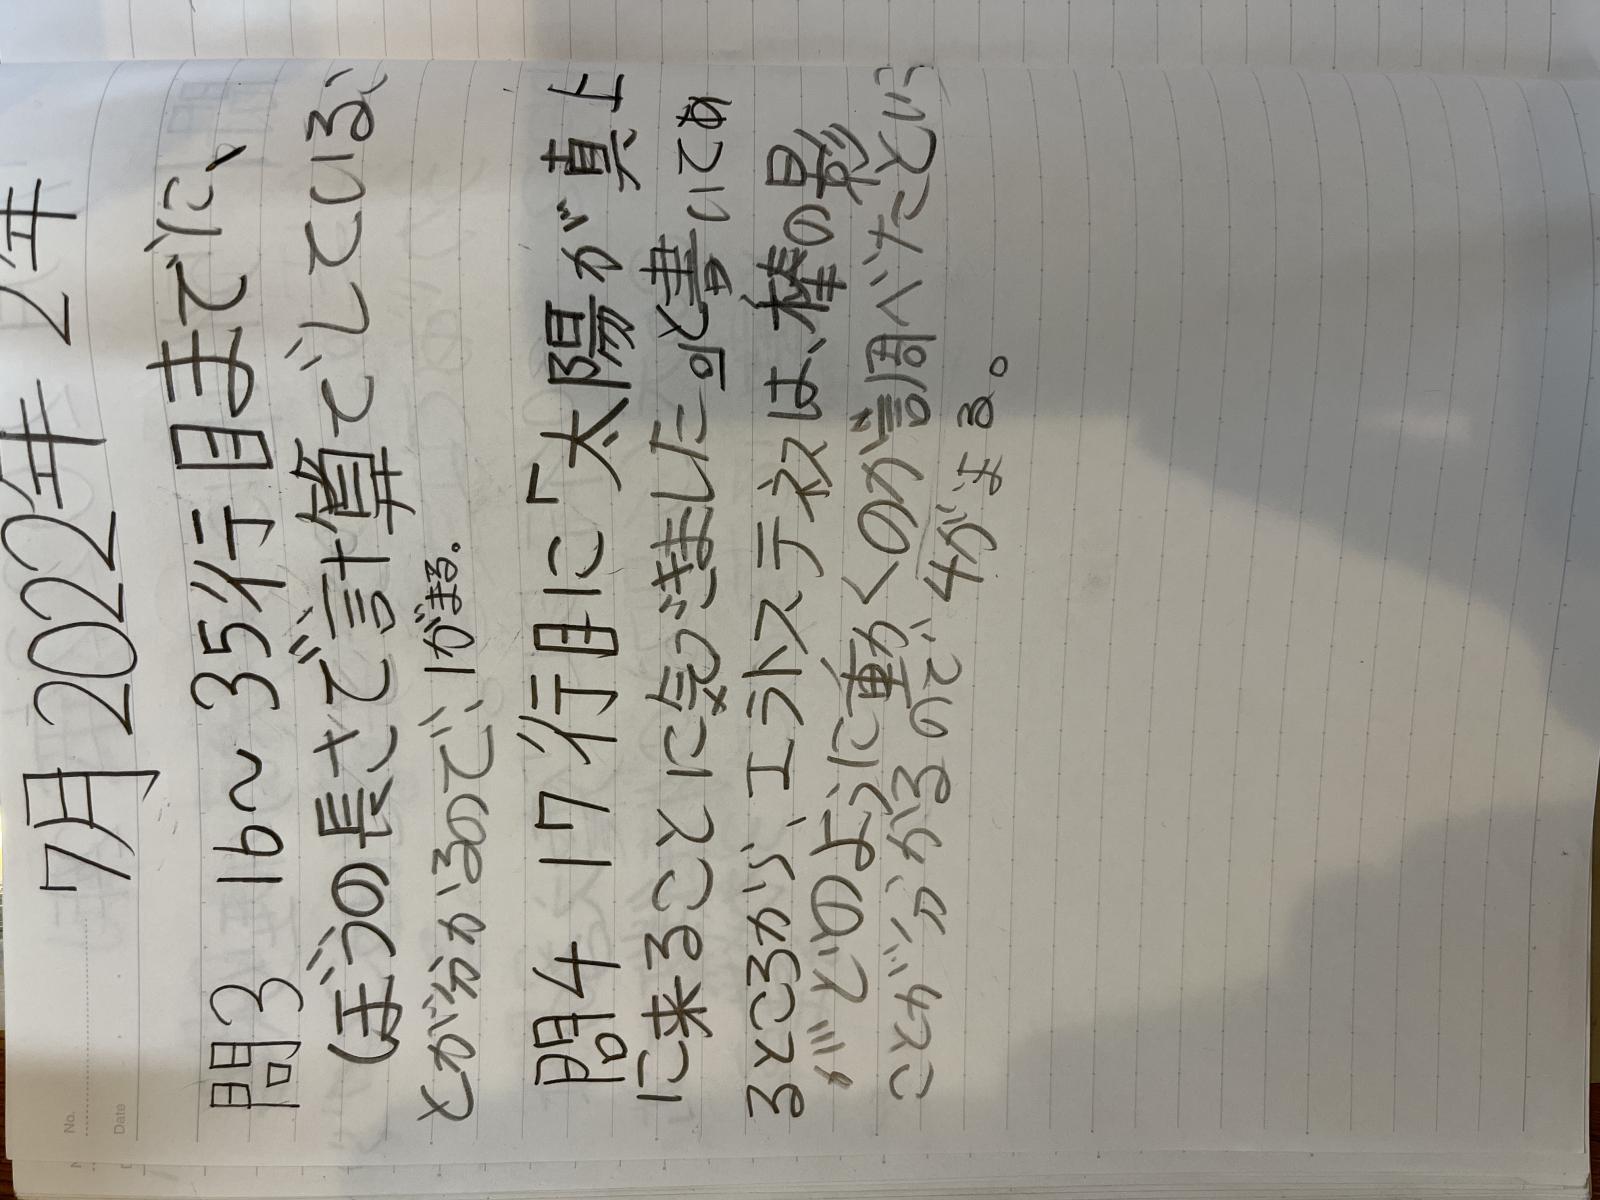 No.
Date
7月2022年 2年
問3 16～35行目までに、
ぼうの長さで計算でしている、
とが分かるので、1がまる。
問4 17行目に「太陽が真上
に来ることに気づきました」と書いてあ
るところから、エラトステネスは、棒の影
がどのように動くのが調べたという
ことが分かるので、4がまる。